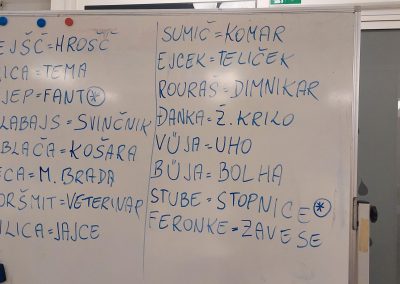 EJŠČ=HROŠČ
ICA=TEMA
JEP=FANT*
LABAJS=SVINČNIK
BLAČA=KOŠARA
ECA=M. BRADA
ORŠMIT=VETERINAR
ILICA=JAJCE
SUMIČ=KOMAR
EJCEK=TELIČEK
ROURAŠ=DIMNIKAR
ĐANKA=Ž. KRILO
VÜJA=UHO
BÜJA=BOLHA
ŠTUBE=STOPNICE*
FERONKE=ZAVESE